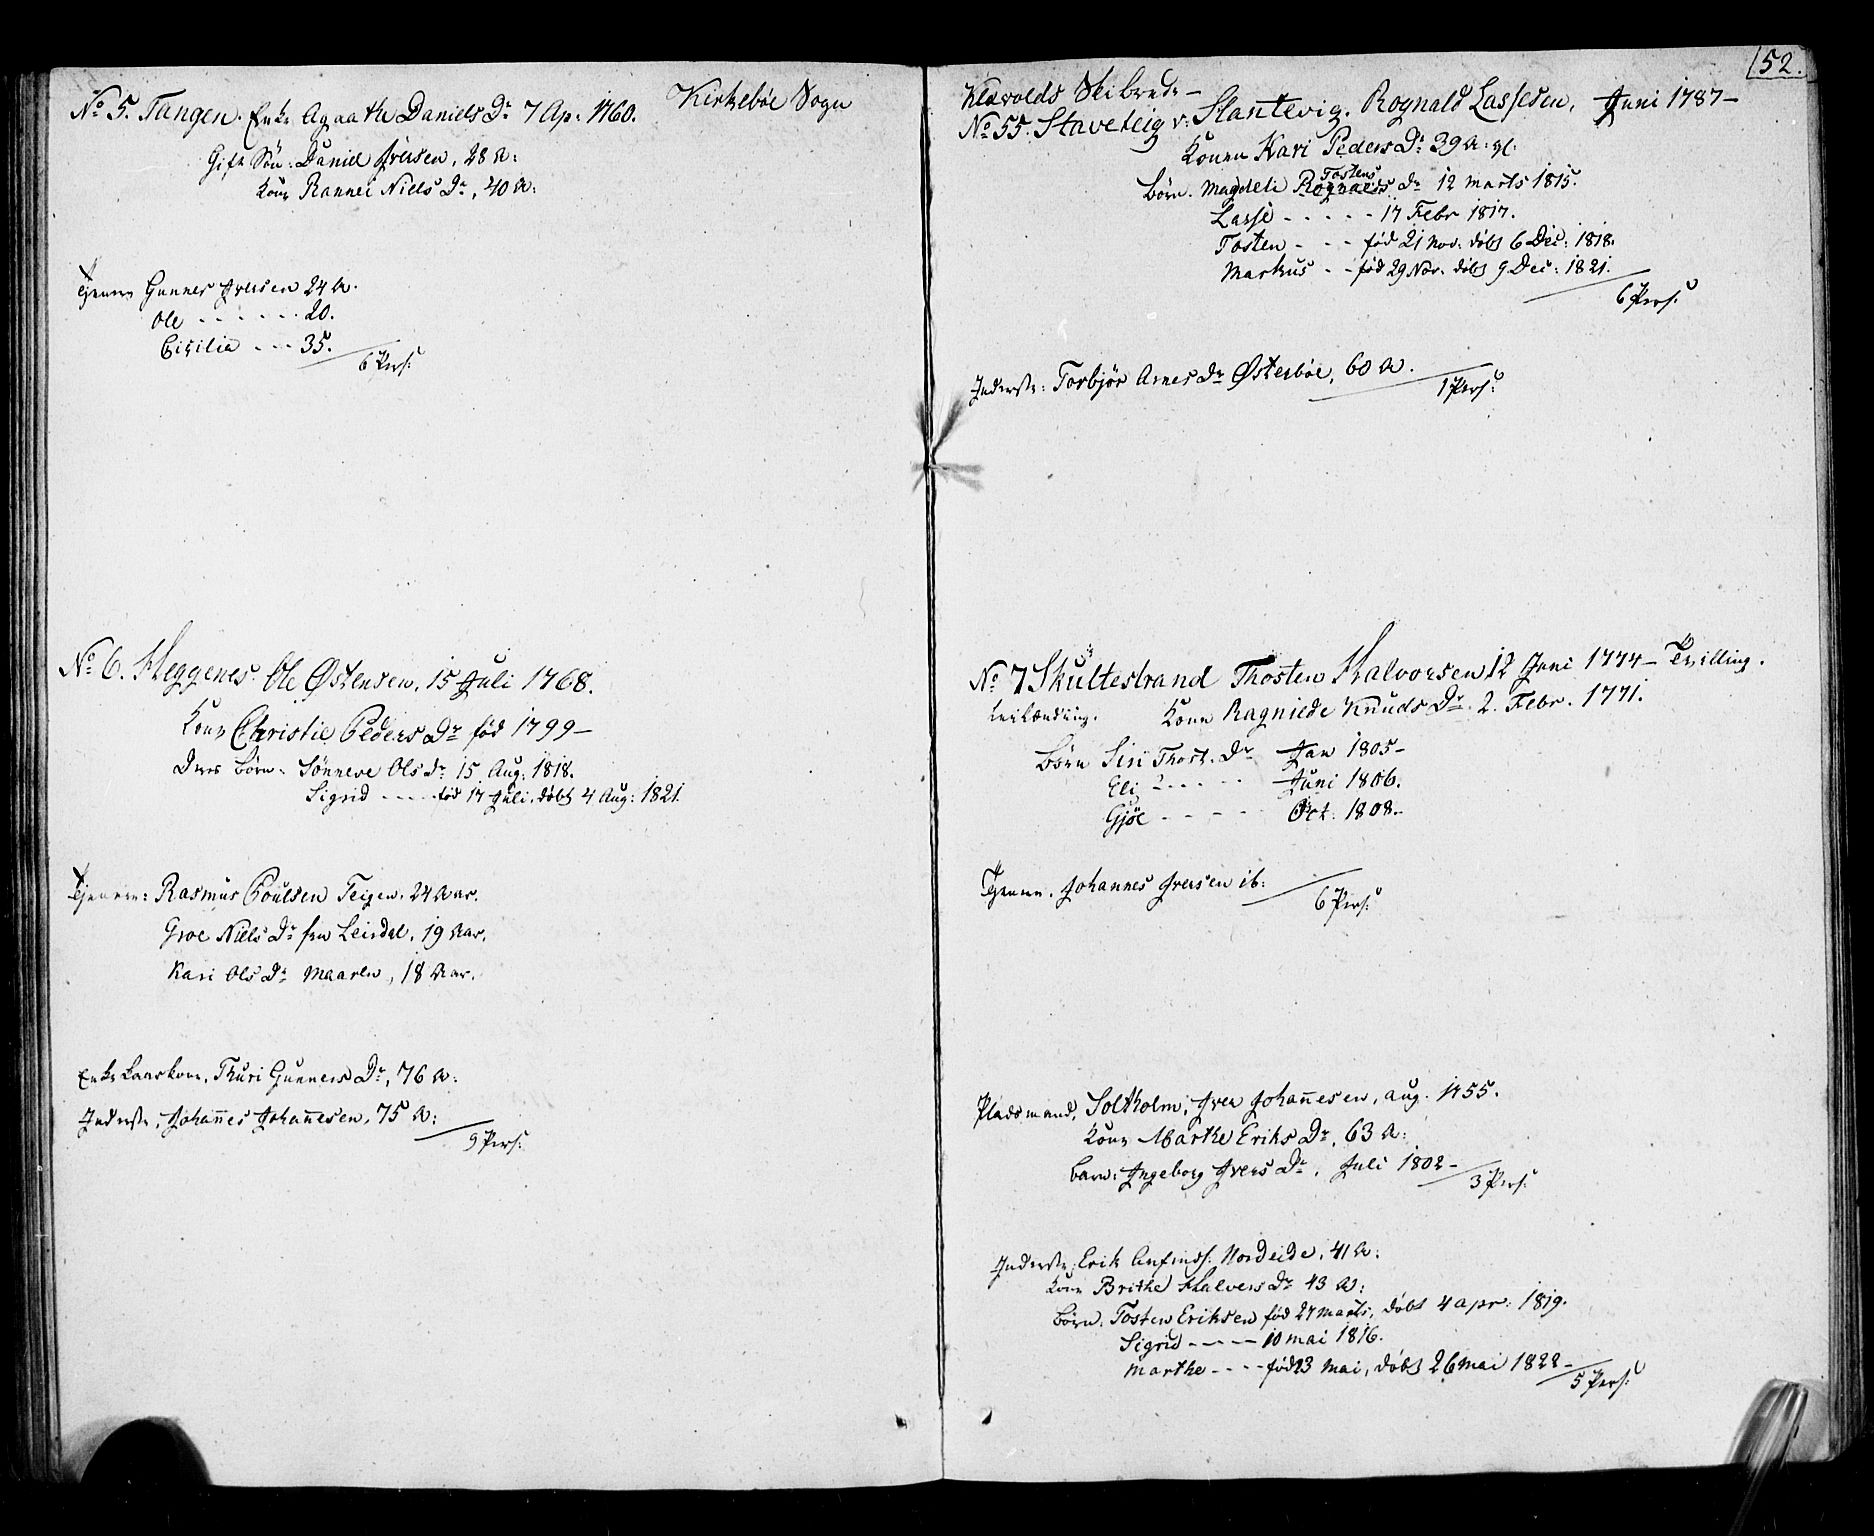 Kirkebøe Sogn
No 5. Tangen. Enke Agaathe Daniels Dr 7 Ap: 1760.
Gift Søn: Daniel Iversen, 28 A:
Kone Rannei Niels Dr, 40 A:
Tjenere Gunner Iversen 24 A.
Ole - - - - - - 20.
Cisilia - - - 35.
6 Pers:
No 6. Heggenes. Ole Østensen, 15 Juli 1768.
Kone Christie Peders Dr fød 1799 -
Deres Børn. Sønneve Ols Dr 15 Aug: 1818.
Sigrid - - - - fød 17 Juli, døbt 4 Aug: 1821.
Tjenere: Rasmus Poulsen Teigen. 24 Aar.
Groe Niels Dr fra Leirdal, 19 Aar.
Kari Ols Dr Maaren, 18 Aar.
Enke Kaarkone, Thuri Gunners Dr, 76 A:
Inderste, Johannes Johannesen, 75 A:
9 Pers:
52.
Klævolds Skibrede -
No 55. Staveteig v: Slantevig. Rognald Lassesen, Juni 1787 -
Konen Kari Peders Dr 39 A: gl.
Tostens
Børn. Magdeli Rognalds Dr 12 Marts 1815.
Lasse - - - - - 17 Febr 1817.
Tosten - - - fød 21 Nov. døbt 6 Dec: 1818.
Markus - - fød 29 Nov. døbt 9 Dec: 1821.
6 Pers:
Inderste: Torbjør Arnes Dr Østerbøe, 60 A.
1 Pers:
No 7 Skultestrand Thosten Halvorsen 12 Juni 1774 - Tvilling.
Leilænding. Kone Ragnilde Knuds Dr. 2. Febr. 1771.
Børn Siri Thost. Dr Jan 1805 -
Eli - - - - - Juni 1806.
Gjøe - - - - Oct: 1808 -
Tjenere. Johannes Iversen 16:
6 Pers:
Pladsmand, Soltholm, Iver Johannesen, Aug. 1755.
Kone Marthe Eriks Dr, 63 A:
Barn: Ingeborg Ivers Dr, Juli 1802 -
3 Pers:
Inderste: Erik Anfinds: Nordeide, 41 A:
Kone Brithe Halvers Dr 43 A:
Børn: Tosten Eriksen fød 27 Marts, døbt 4 Apr: 1819.
Sigrid - - - - 10 Mai 1816.
Marthe - - - - fød 23 Mai, døbt 26 Mai 1822 -
5 Pers: